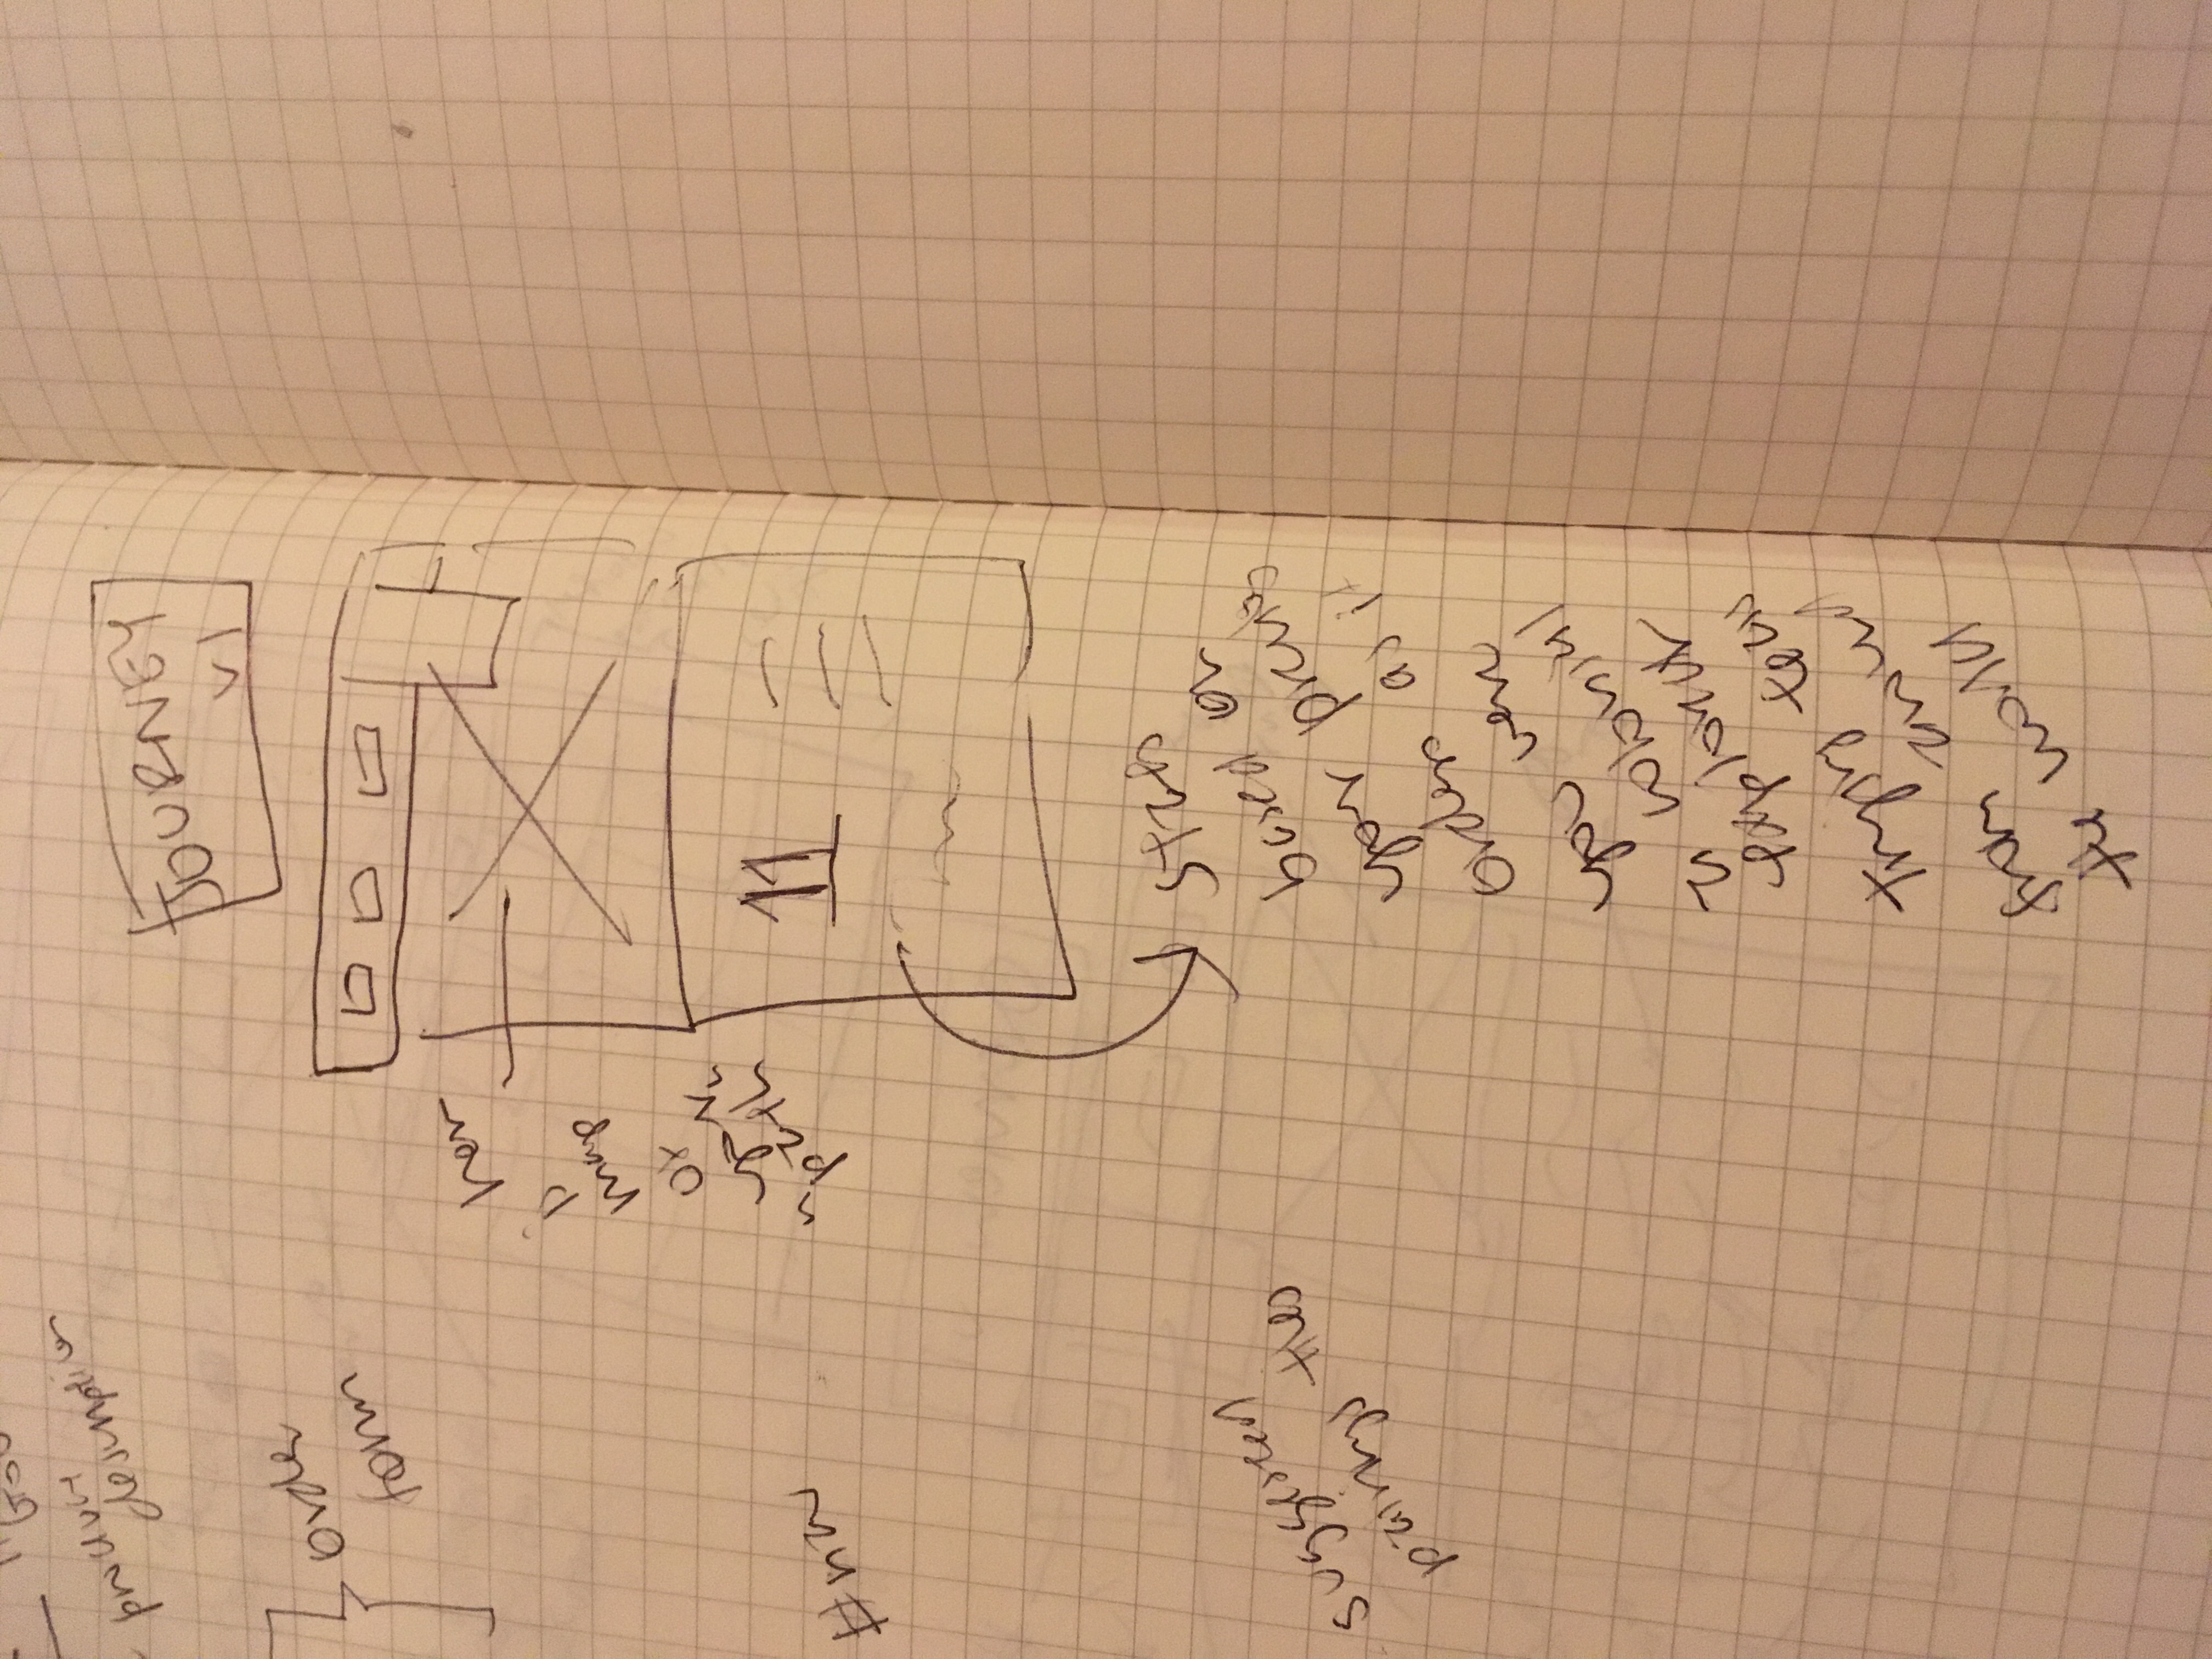 product
description
Order
form
suggested
pairings tiles
JOURNEY
V1
her
is
map
of
your
"path"
11
stats
based on
your previous
orders as if
you were
a colonial
explorer
trying teas
from around
the world